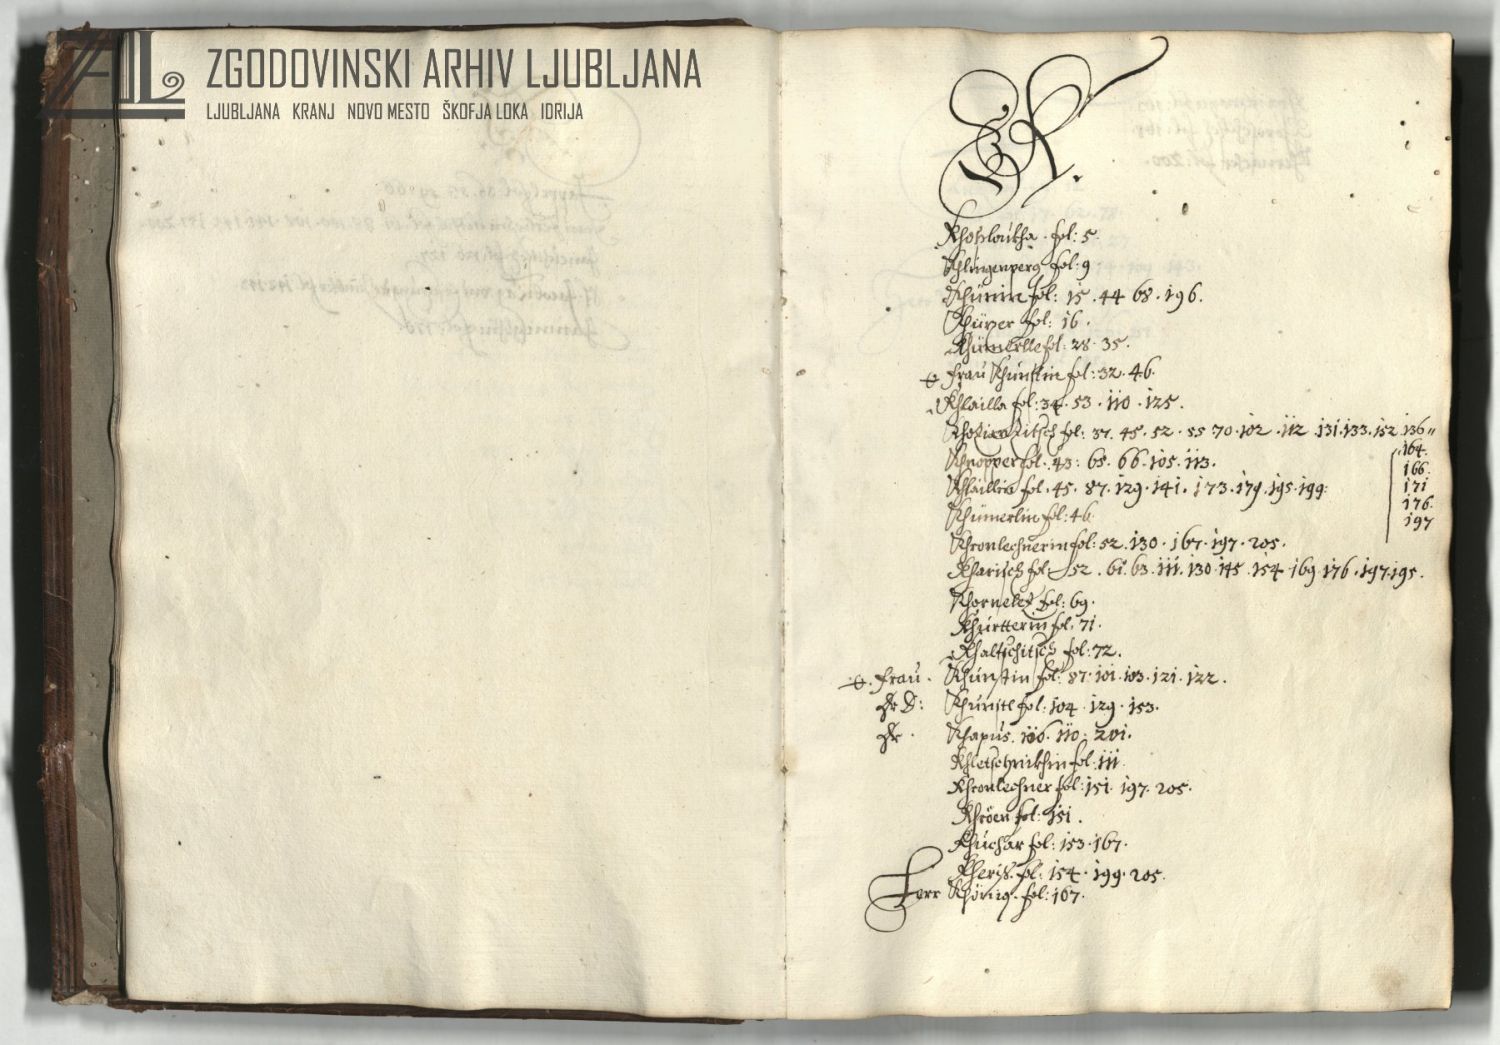 ZGODOVINSKI ARHIV LJUBLJANA
LJUBLJANA KRANJ NOVO MESTO ŠKOFJA LOKA IDRIJA
K.
fol: 5
Khlingenperg fol: 9
fol: 15. 44 68. 196.
fol: 16.
fol: 28. 35.
Frau Khunstin fol: 32. 46.
Khlailla fol: 34. 53. 110. 125.
fol: 37. 45. 52. 55 70. 102. 112. 131. 133. 152. 136
164.
166.
171
176.
197
Khnopper fol. 43: 65. 66. 105. 113.
fol. 45. 87. 129. 141. 173. 179. 195. 199.
Khümerlin fol: 46.
Khronlechnerin fol: 52. 130. 167. 197. 205.
Kharisch fol: 52. 61. 63. 111. 130. 145. 154. 169. 176. 197. 195.
fol: 69.
fol. 71.
Khaltschitsch fol: 72.
Frau. Khunstin fol: 87. 101. 103. 121. 122.
Khunstl fol: 104. 129. 153.
Khapus. 106. 110. 201.
fol. 111.
Khronlechner fol: 151. 197. 205.
Khröen fol: 151.
Khuchar fol: 153. 167.
fol. 154. 199. 205.
Herr fol: 167.